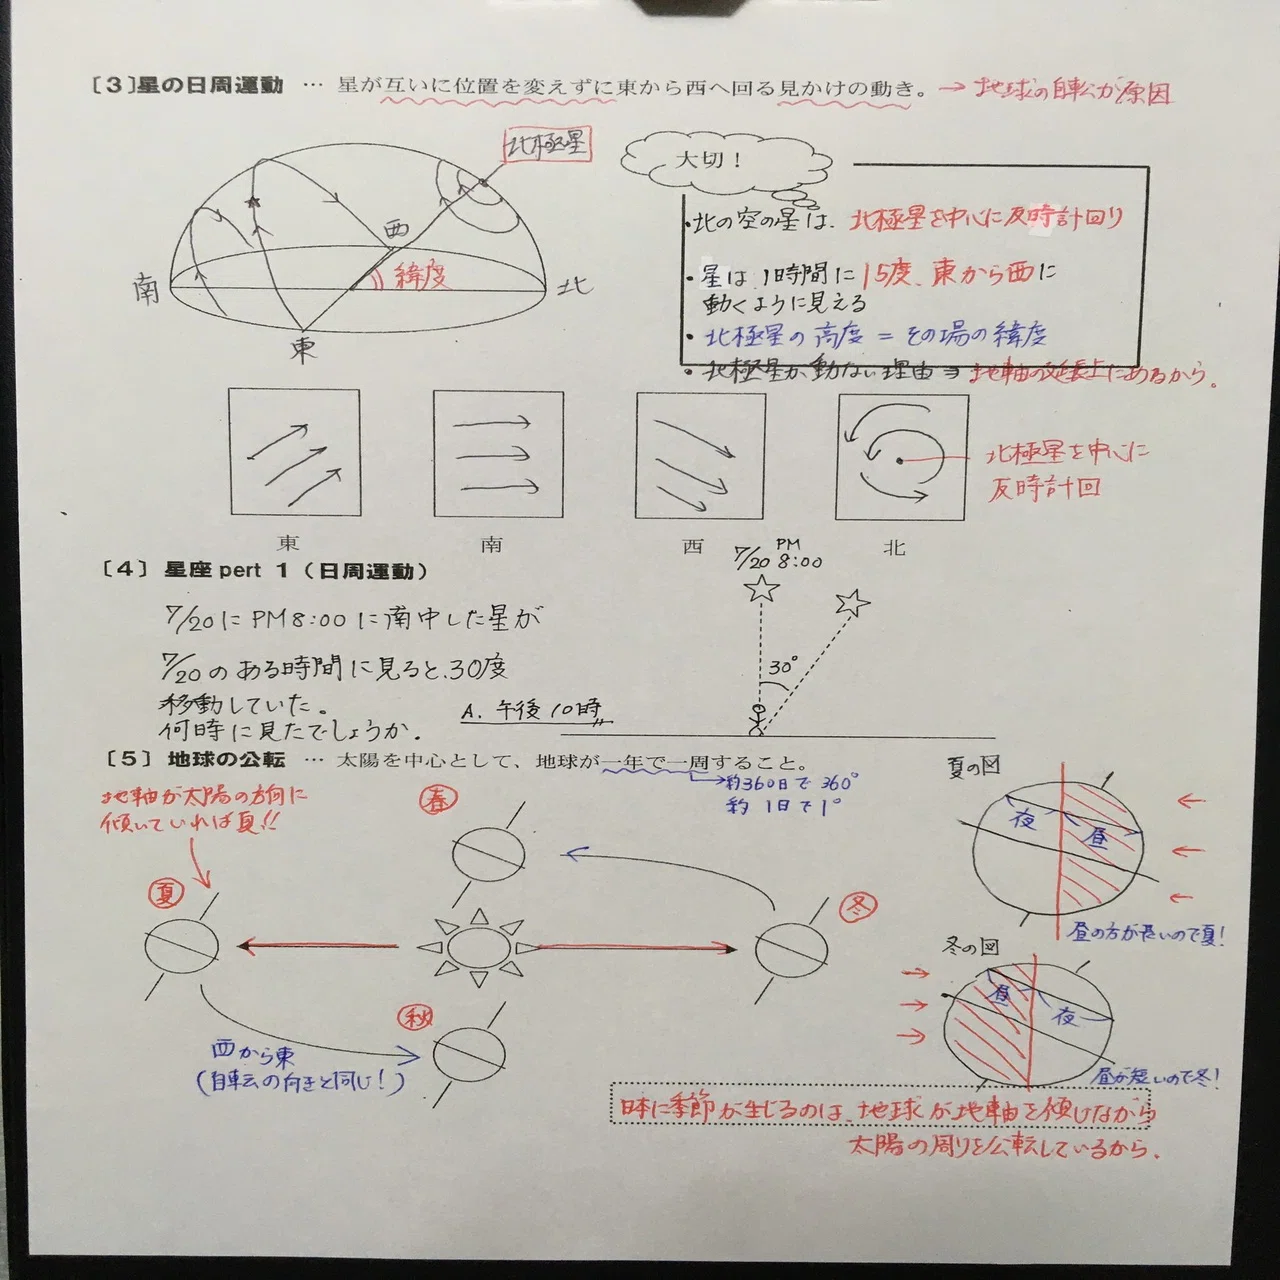 ［3］星の日周運動 … 星が互いに位置を変えずに東から西へ回る見かけの動き。→ 地球の自転が原因
北極星
西
緯度
南
北
東
大切！
・北の空の星は、北極星を中心に反時計回り
・星は、1時間に15度、東から西に
動くように見える
・北極星の高度 = その場の緯度
・北極星が動かない理由⇒地軸の延長上にあるから。
北極星を中心に
反時計回
東
南
西
北
［4］星座 pert 1（日周運動）
7/20にPM8:00に南中した星が
7/20のある時間に見ると、30度
移動していた。
何時に見たでしょうか.
A. 午後10時
7/20 PM 8:00
30°
［5］地球の公転 … 太陽を中心として、地球が一年で一周すること。
→約360日で 360°
約 1日で1°
地軸が太陽の方向に
傾いていれば夏!!
春
夏
冬
秋
西から東
(自転の向きと同じ!)
夏の図
夜
昼
昼の方が長いので夏!
冬の図
昼
夜
昼が短いので冬!
日本に季節が生じるのは、地球が地軸を傾けながら
太陽の周りを公転しているから、